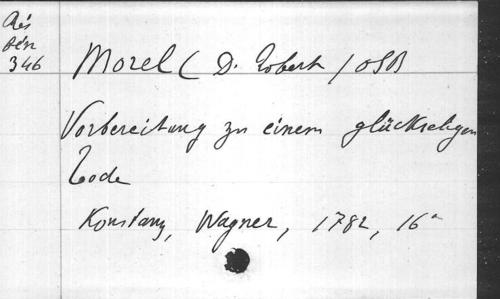 Rés
bén
346
Morel ( D. Robert ) OSB
Vorbereitung zu einem glückseligen
Tode
Konstanz, Wagner, 1782, 16°